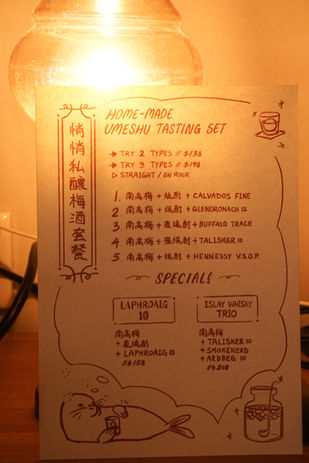 悄悄私釀梅酒套餐
HOME-MADE
UMESHU TASTING SET
→ TRY 2 TYPES // $138
→ TRY 3 TYPES // $198
▷ STRAIGHT / ON ROCK
1. 南高梅 + 燒酎 + CALVADOS FINE
2. 南高梅 + 燒酎 + GLENDRONACH 12
3. 南高梅 + 麥燒酎 + BUFFALO TRACE
4. 南高梅 + 麥燒酎 + TALISKER 10
5. 南高梅 + 燒酎 + HENNESSY V.S.O.P.
SPECIAL!
LAPHROAIG
10
南高梅
+ 麥燒酎
+ LAPHROAIG 10
//$158
ISLAY WHISKY
TRIO
南高梅
+ TALISKER 10
+ SMOKEHEAD
+ ARDBEG 10
//$208